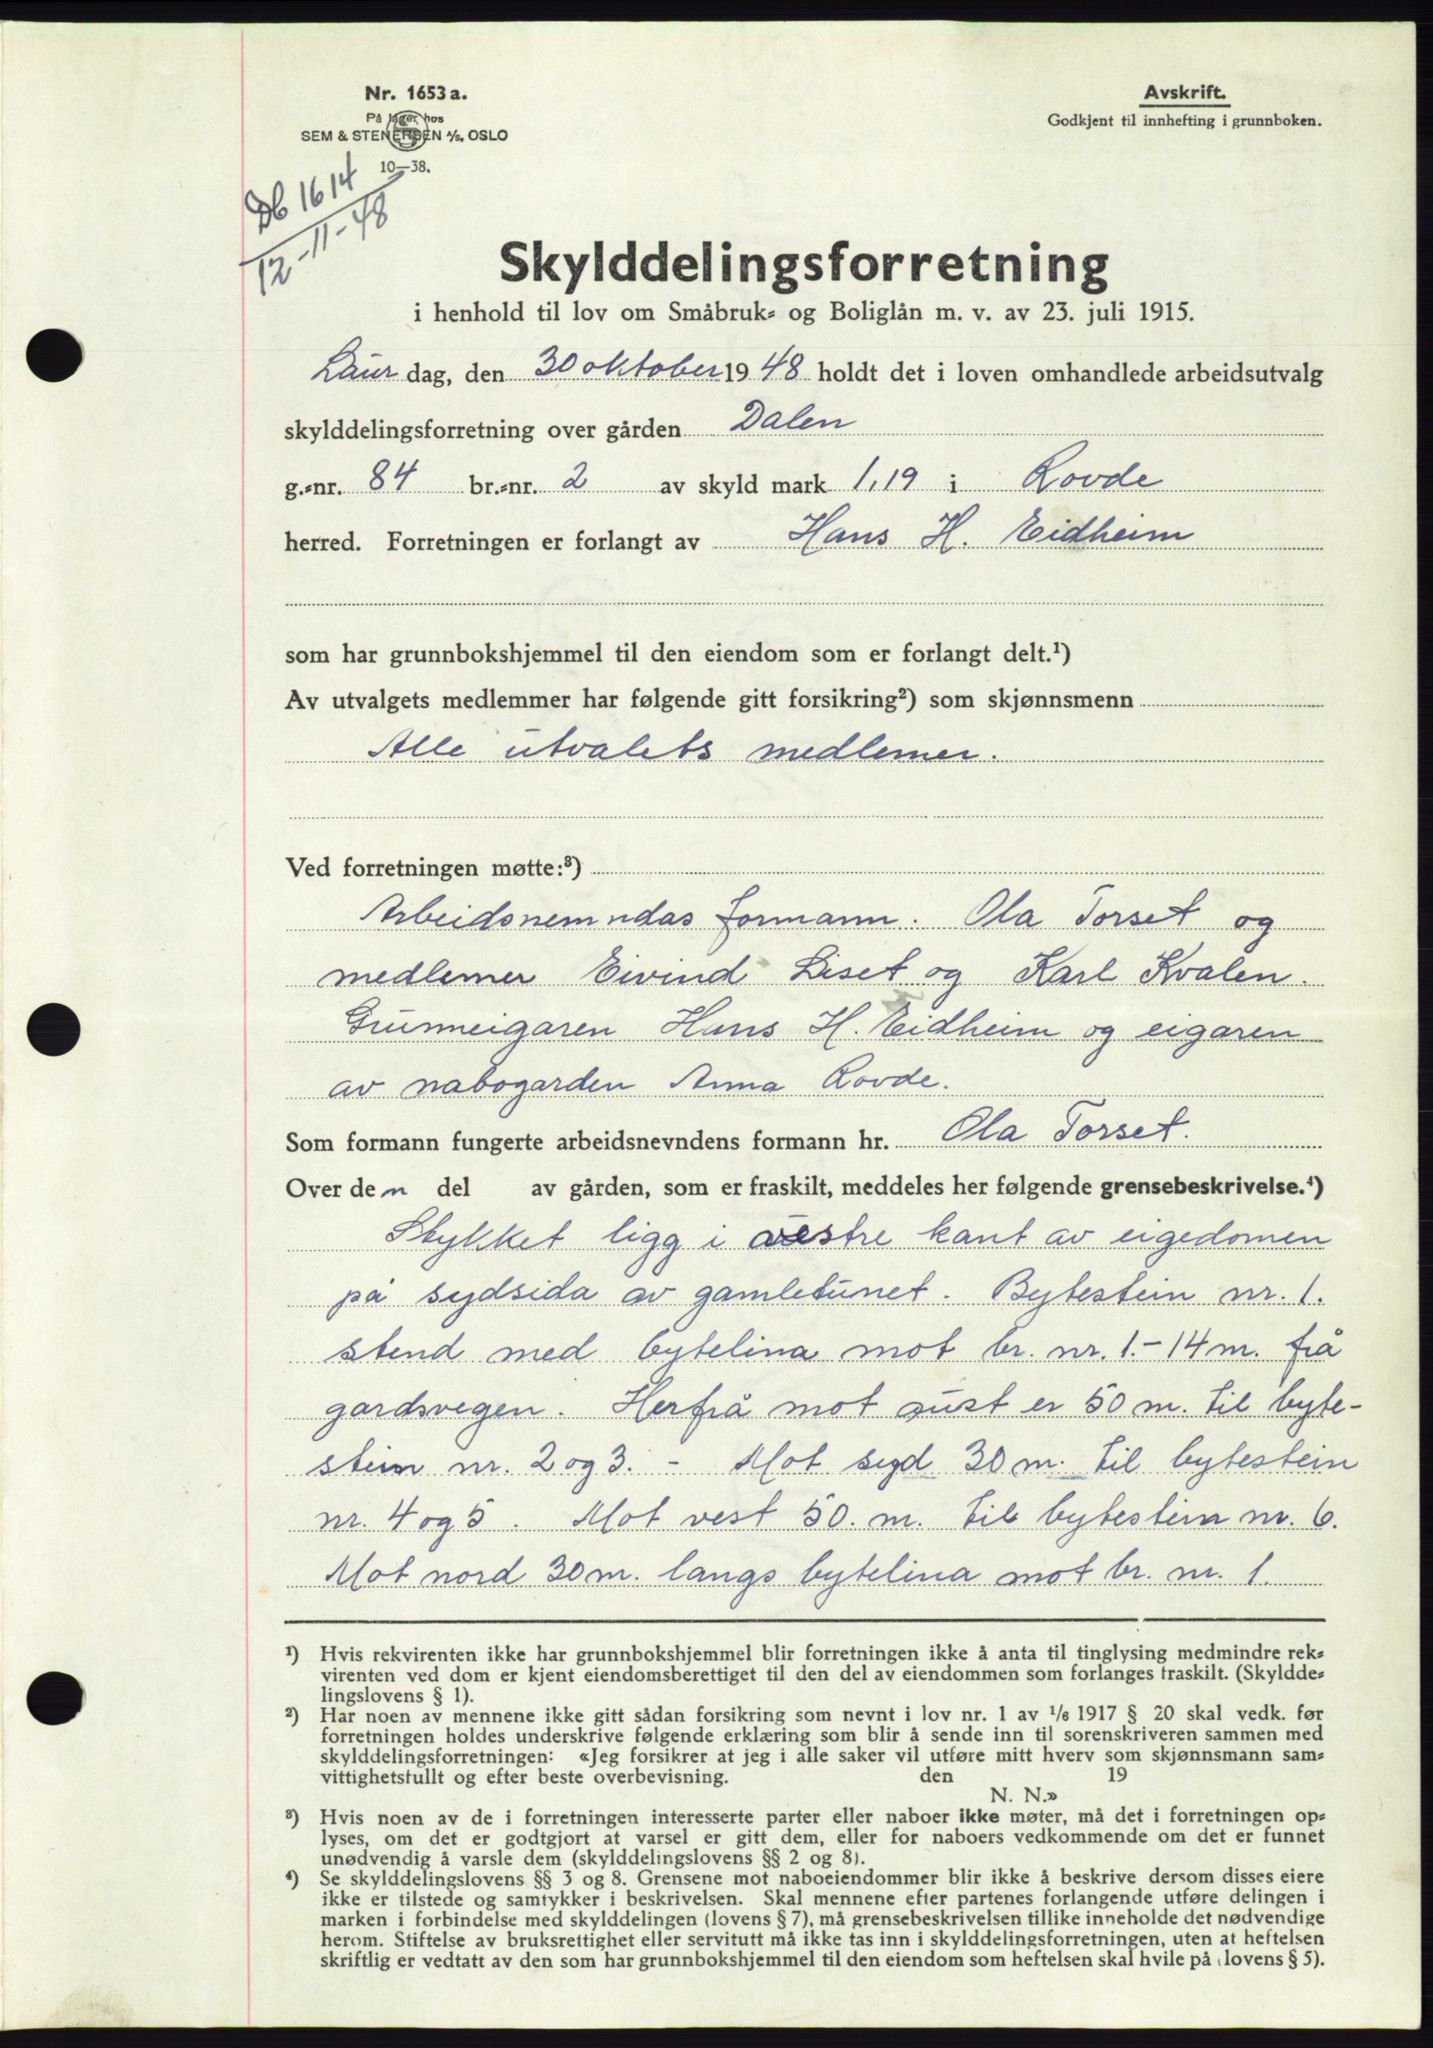 Nr. 1653a.
På lager hos
SEM & STENERSEN A/S, OSLO
10—38.
Avskrift.
Godkjent til innhefting i grunnboken.
Db 1614
12-11-48
Skylddelingsforretning
i henhold til lov om Småbruk- og Boliglån m. v. av 23. juli 1915.
Laur dag, den 30 oktober 1948 holdt det i loven omhandlede arbeidsutvalg
skylddelingsforretning over gården Dalen
g.-nr. 84 br.-nr. 2 av skyld mark 1,19 i Rovde
herred. Forretningen er forlangt av Hans H. Eidheim
som har grunnbokshjemmel til den eiendom som er forlangt delt.¹)
Av utvalgets medlemmer har følgende gitt forsikring²) som skjønnsmenn
Alle utvalets medlemer.
Ved forretningen møtte:³)
Arbeidsnemndas formann. Ola Torset og
medlemer Eivind Liset og Karl Kvalen.
Grunneigaren Hans H. Eidheim og eigaren
av nabogarden Anna Rovde.
Som formann fungerte arbeidsnevndens formann hr. Ola Torset.
Over den del av gården, som er fraskilt, meddeles her følgende grensebeskrivelse.⁴)
Stykket ligg i vestre kant av eigedomen
på sydsida av gamletunet. Bytestein nr. 1.
stend med bytelina mot br. nr. 1.-14 m. frå
gardsvegen. Herfrå mot aust er 50 m. til byte-
stein nr. 2 og 3. - Mot syd 30 m. til bytestein
nr. 4 og 5. Mot vest 50. m. til bytestein nr. 6.
Mot nord 30 m. langs bytelina mot br. nr. 1.
¹) Hvis rekvirenten ikke har grunnbokshjemmel blir forretningen ikke å anta til tinglysing medmindre rek-
virenten ved dom er kjent eiendomsberettiget til den del av eiendommen som forlanges fraskilt. (Skyldde-
lingslovens § 1).
²) Har noen av mennene ikke gitt sådan forsikring som nevnt i lov nr. 1 av 1/6 1917 § 20 skal vedk. før
forretningen holdes underskrive følgende erklæring som blir å sende inn til sorenskriveren sammen med
skylddelingsforretningen: «Jeg forsikrer at jeg i alle saker vil utføre mitt hverv som skjønnsmann sam-
vittighetsfullt og efter beste overbevisning. den 19
N. N.»
³) Hvis noen av de i forretningen interesserte parter eller naboer ikke møter, må det i forretningen op-
lyses, om det er godtgjort at varsel er gitt dem, eller for naboers vedkommende om det er funnet
unødvendig å varsle dem (skylddelingslovens §§ 2 og 8).
⁴) Se skylddelingslovens §§ 3 og 8. Grensene mot naboeiendommer blir ikke å beskrive dersom disses eiere
ikke er tilstede og samtykker i beskrivelsen. Skal mennene efter partenes forlangende utføre delingen i
marken i forbindelse med skylddelingen (lovens § 7), må grensebeskrivelsen tillike inneholde det nødvendige
herom. Stiftelse av bruksrettighet eller servitutt må ikke tas inn i skylddelingsforretningen, uten at heftelsen
skriftlig er vedtatt av den som har grunnbokshjemmel til den eiendom som heftelsen skal hvile på (lovens § 5).